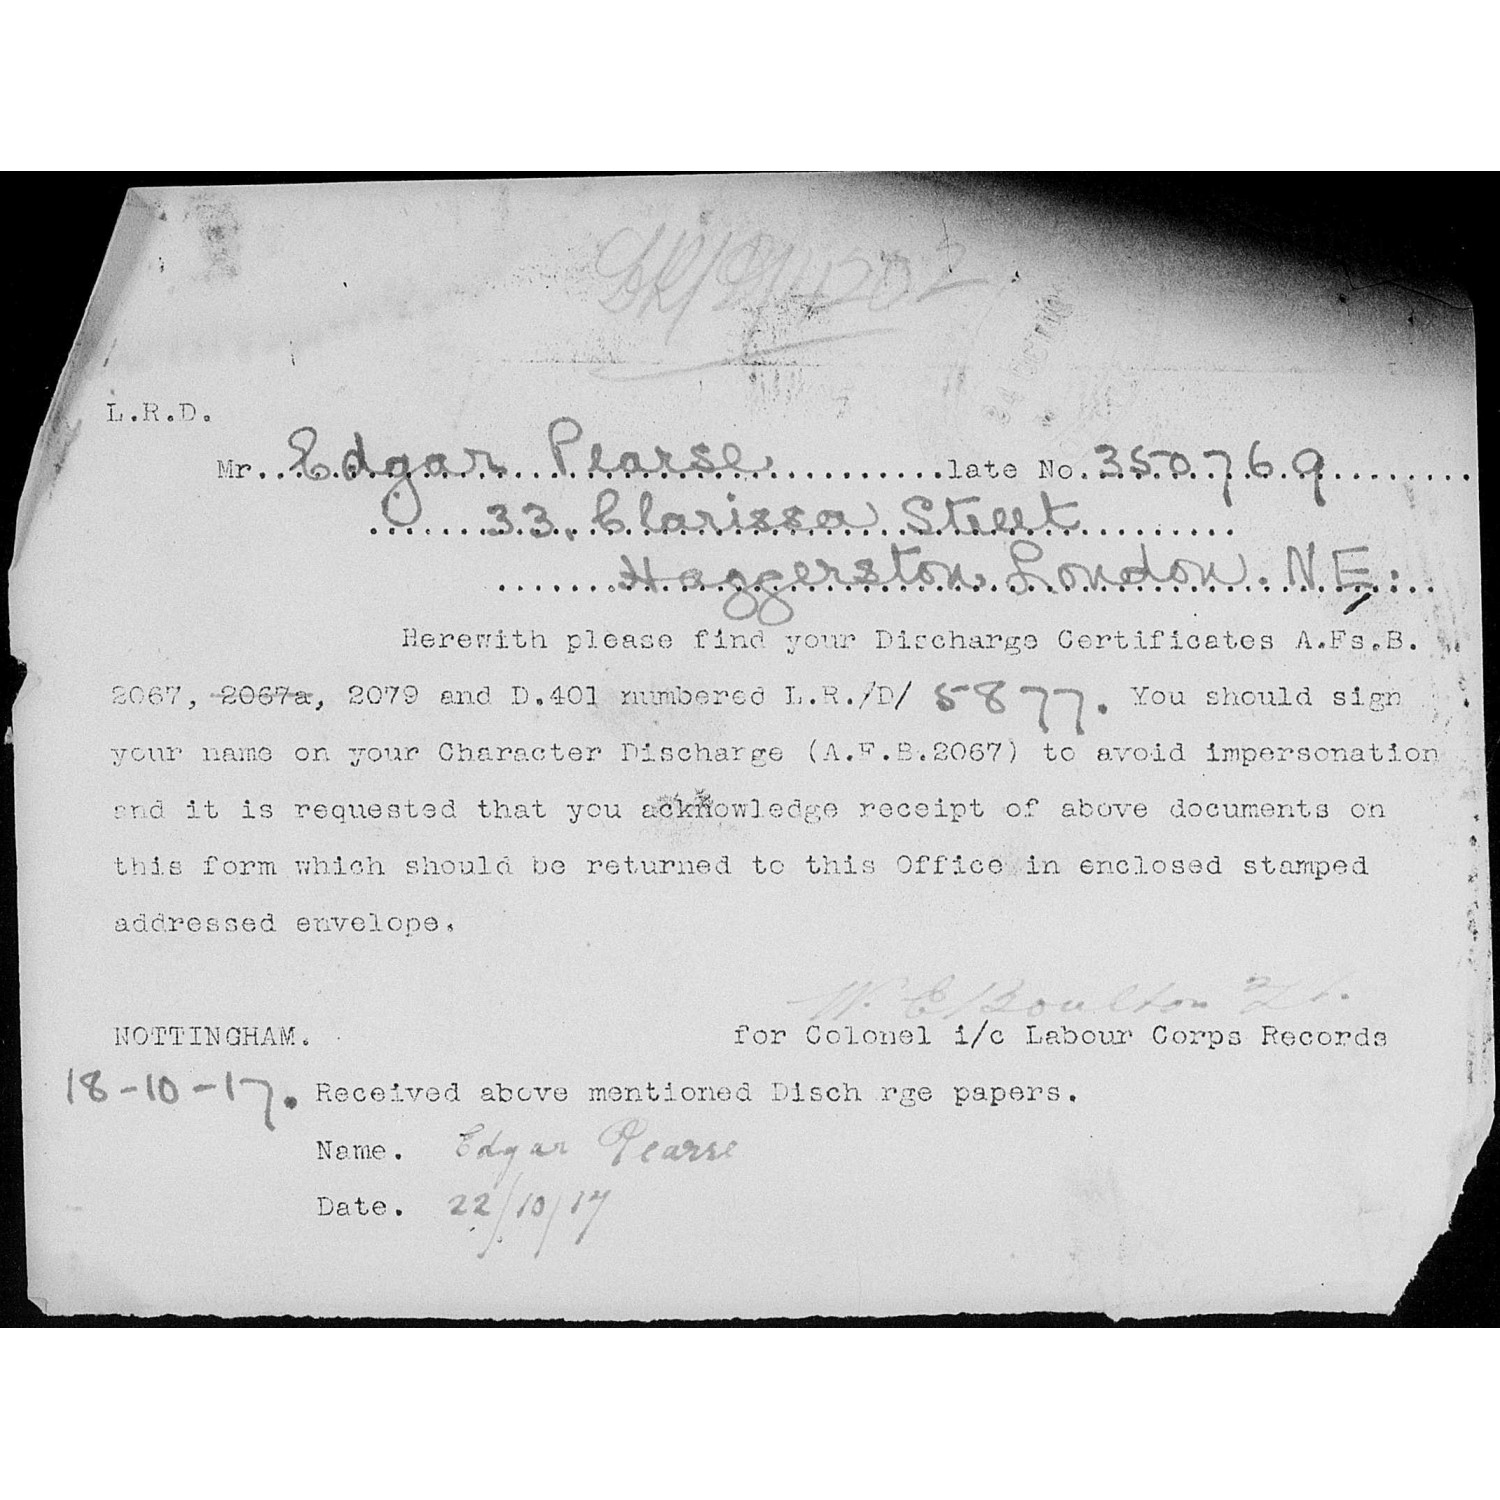 L.R.D.
Mr. Edgar Pearse late No. 350769
33, Clarissa Street
Haggerston London. N.E.
Herewith please find your Discharge Certificates A.Fs.B.
2067, 2067a, 2079 and D.401 numbered L.R./D/ 5877. You should sign
your name on your Character Discharge (A.F.B.2067) to avoid impersonation
and it is requested that you acknowledge receipt of above documents on
this form which should be returned to this Office in enclosed stamped
addressed envelope.
W. E. Boulton Lt.
NOTTINGHAM. for Colonel i/c Labour Corps Records
18-10-17. Received above mentioned Disch rge papers.
Name. Edgar Pearse
Date. 22/10/17